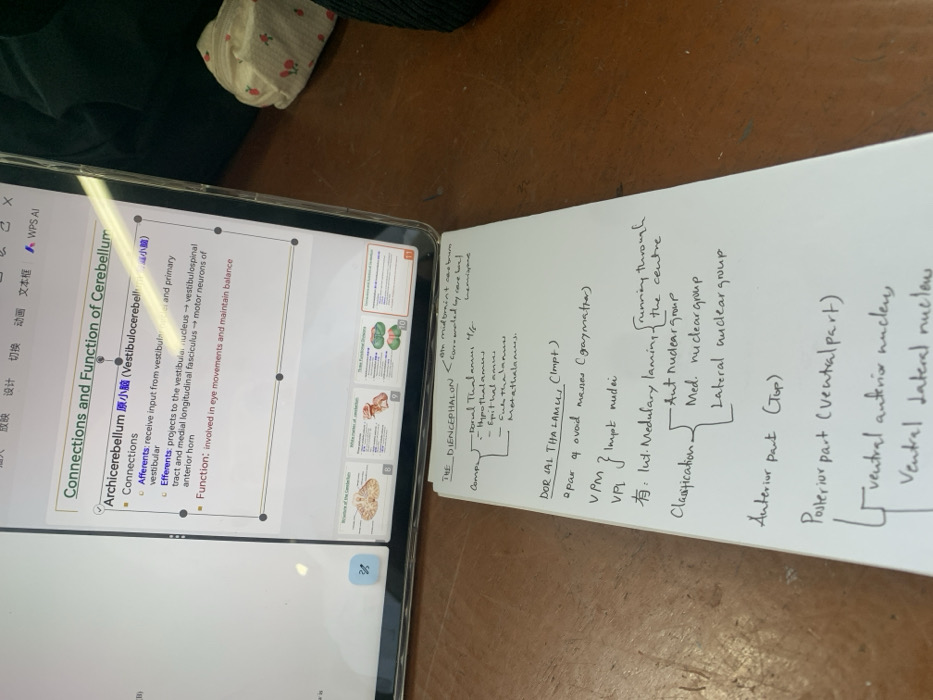 WPS AI
切换 动画 文本框
放映 设计
Connections and Function of Cerebellum
Archicerebellum 原小脑 (Vestibulocerebell 小脑)
Connections
Afferents: receive input from vestibul and primary
vestibular
Efferents: projects to the vestibular nucleus → vestibulospinal
tract and medial longitudinal fasciculus → motor neurons of
anterior horn
Function: involved in eye movements and maintain balance
11
10
9
8
THE DIENCEPHALON < btn midbrain & cerebrum
connected by cerebral
hemisphere
Dorsal Thalamus
- Hypothalamus
- Epithalamus
- Subthalamus
- Metathalamus.
DORSAL THALAMUS (Impt)
a pair of ovoid masses (gray matter)
VPM } Impt nuclei
VPL
有: Int. Medulary lamina { running through
the centre
Classification Ant nuclear group
Med. nuclear group
Lateral nuclear group
Anterior part (Top)
Posterior part (ventral part)
ventral anterior nucleus
Ventral lateral nucleus